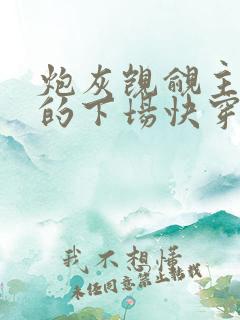 炮灰觊觎主
的下场快穿
我不想懂
未经同意禁止转载